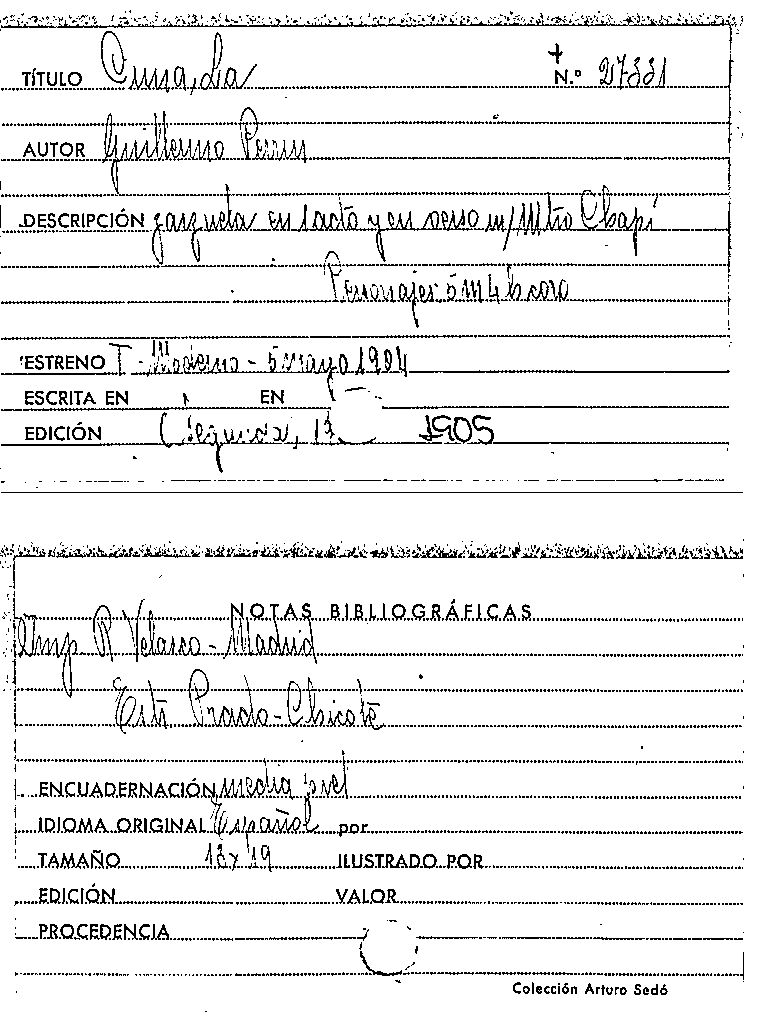 TÍTULO Cuna, La N.º 27331
AUTOR Guillermo Perrin
DESCRIPCIÓN zarzuela en 1 acto y en verso m/ Mtro Chapí
Personajes 5 m 4 h coro
ESTRENO T - Moderno - 5 mayo 1904
ESCRITA EN EN
EDICIÓN (Segunda), 1905
NOTAS BIBLIOGRÁFICAS
Imp R Velasco - Madrid
Estr Prado - Chicote
ENCUADERNACIÓN media piel
IDIOMA ORIGINAL Español por
TAMAÑO 13 x 19 ILUSTRADO POR
EDICIÓN VALOR
PROCEDENCIA
Colección Arturo Sedó